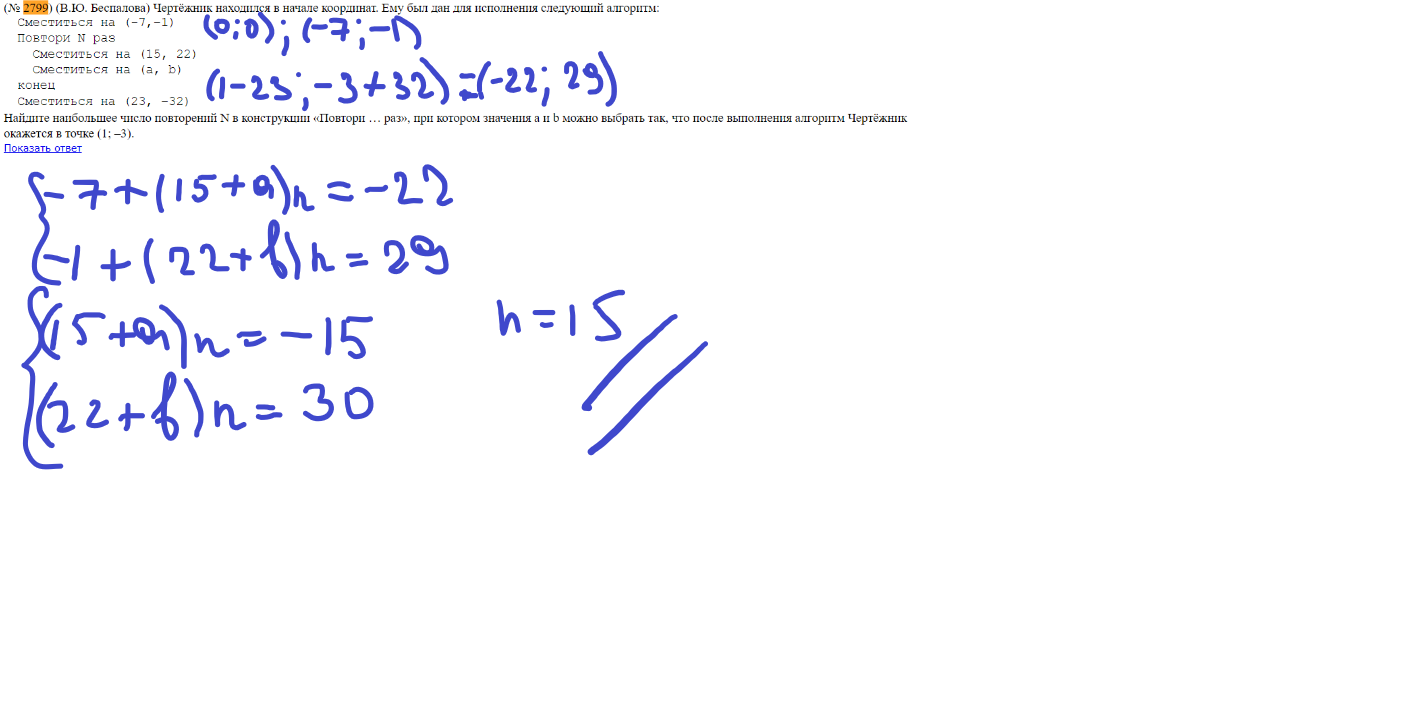 (№ 2799) (В.Ю. Беспалова) Чертёжник находился в начале координат. Ему был дан для исполнения следующий алгоритм:
Сместиться на (-7,-1)
(0;0); (-7;-1)
Повтори N раз
Сместиться на (15, 22)
Сместиться на (a, b)
(1-23; -3+32) = (-22; 29)
конец
Сместиться на (23, -32)
Найдите наибольшее число повторений N в конструкции «Повтори … раз», при котором значения a и b можно выбрать так, что после выполнения алгоритм Чертёжник
окажется в точке (1; –3).
Показать ответ
-7+(15+a)n=-22
-1+(22+b)n=29
(15+a)n=-15
n=15
(22+b)n=30